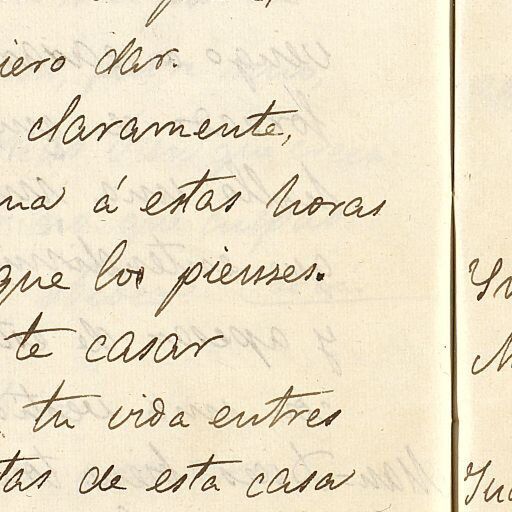 iero dar.
claramente,
na á estas horas
que lo pienses.
te casar
tu vida entres
tas de esta casa